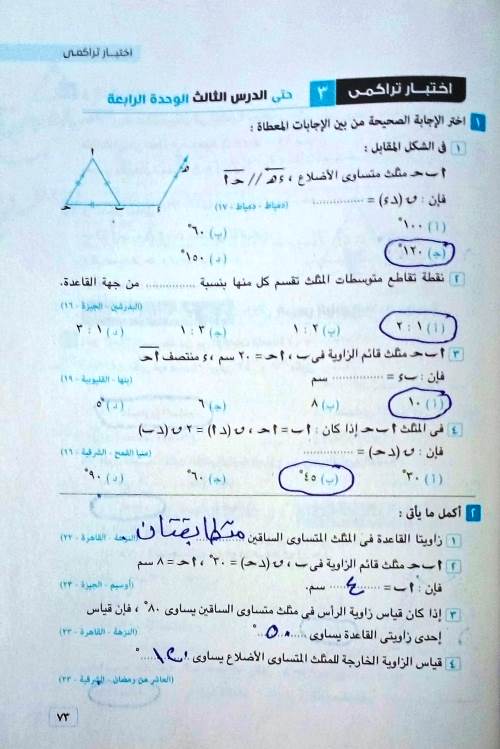 اختبار تراكمى
اختبار تراكمى ٣ حتى الدرس الثالث الوحدة الرابعة
١ اختر الإجابة الصحيحة من بين الإجابات المعطاة :
١ فى الشكل المقابل :
ا ب ح مثلث متساوى الأضلاع ، ءھ // حا
فإن : ى (دء) = ............... (دمياط - دمياط - ١٧)
(أ) ١٠٠° (ب) ٦٠°
(ج) ١٢٠° (د) ١٥٠°
٢ نقطة تقاطع متوسطات المثلث تقسم كل منها بنسبة ............... من جهة القاعدة.
(البدرشين - الجيزة - ١٦)
(أ) ١ : ٢ (ب) ٢ : ١ (ج) ٣ : ١ (د) ١ : ٣
٣ ا ب ح مثلث قائم الزاوية فى ب ، اح = ٢٠ سم ، ء منتصف اح
فإن : بء = ............... سم (بنها - القليوبية - ١٩)
(أ) ١٠ (ب) ٨ (ج) ٦ (د) ٥
٤ فى المثلث ا ب ح إذا كان : اب = اح ، ى (دا) = ٢ ى (دب)
فإن : ى (دح) = ............... (منيا القمح - الشرقية - ١٩)
(أ) ٣٠° (ب) ٤٥° (ج) ٦٠° (د) ٩٠°
٢ أكمل ما يأتى :
١ زاويتا القاعدة فى المثلث المتساوى الساقين متطابقتان (النزهة - القاهرة - ٢٢)
٢ ا ب ح مثلث قائم الزاوية فى ب ، ى (دح) = ٣٠° ، اح = ٨ سم
فإن : اب = ٤ سم. (أوسيم - الجيزة - ٢٣)
٣ إذا كان قياس زاوية الرأس فى مثلث متساوى الساقين يساوى ٨٠° ، فإن قياس
إحدى زاويتى القاعدة يساوى ٥٠° (النزهة - القاهرة - ٢٣)
٤ قياس الزاوية الخارجة للمثلث المتساوى الأضلاع يساوى ١٢٠°
(العاشر من رمضان - الشرقية - ٢٣)
٧٣